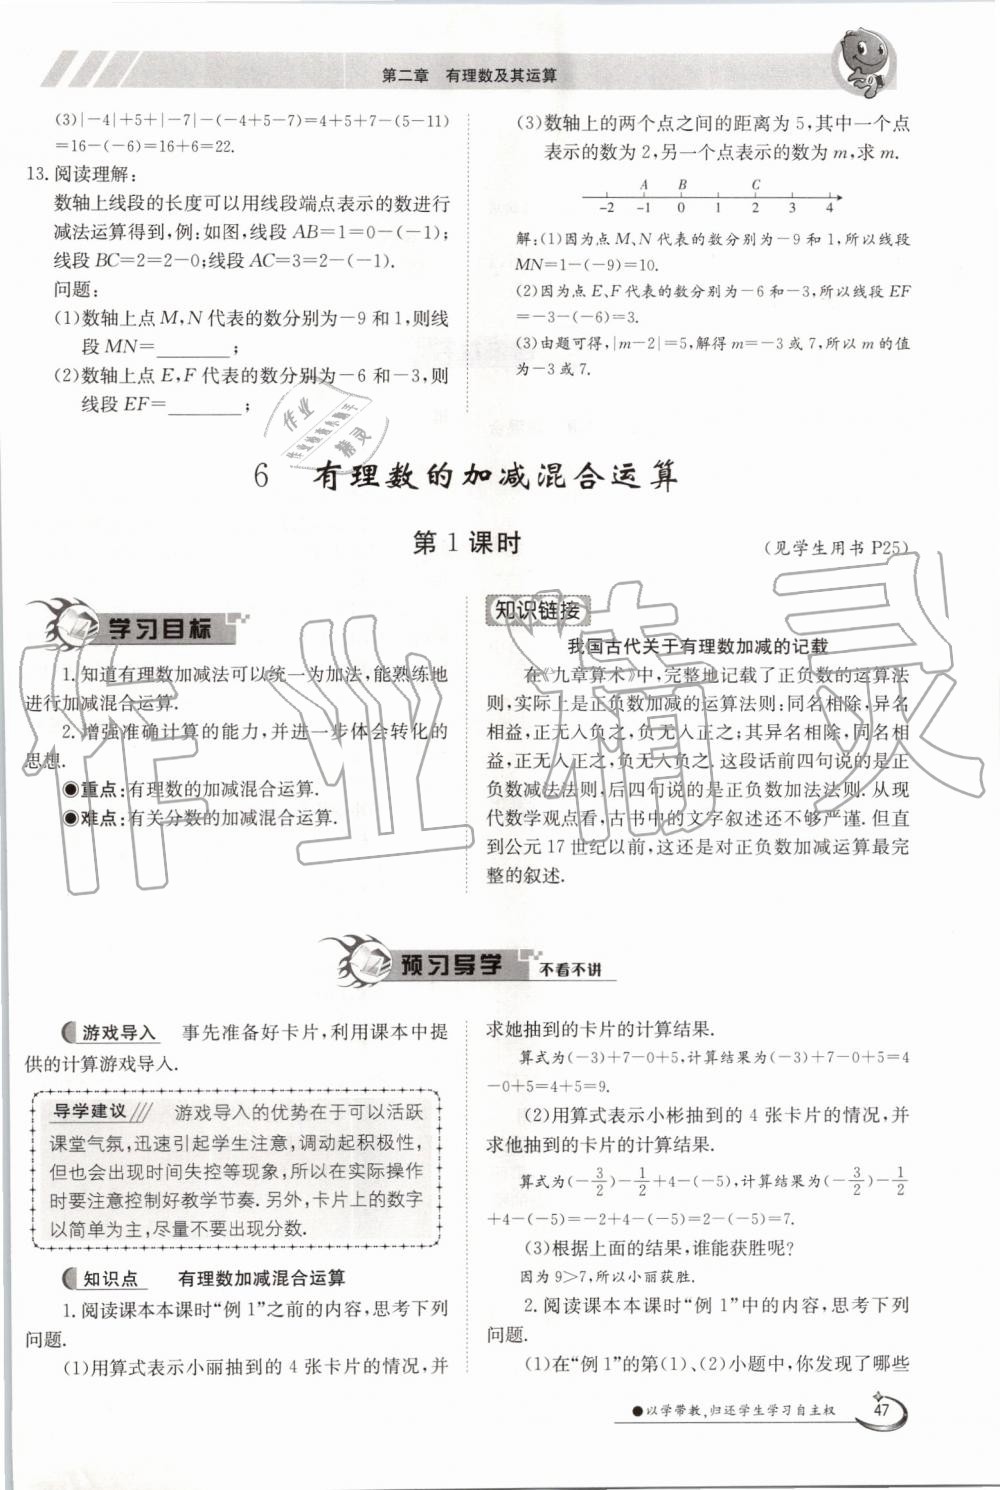 第二章 有理数及其运算
(3)|-4|+5+|-7|-(-4+5-7)=4+5+7-(5-11)
=16-(-6)=16+6=22.
13.阅读理解:
数轴上线段的长度可以用线段端点表示的数进行
减法运算得到,例:如图,线段 AB=1=0-(-1);
线段 BC=2=2-0;线段 AC=3=2-(-1).
问题:
(1)数轴上点 M,N 代表的数分别为-9 和 1,则线
段 MN=________;
(2)数轴上点 E,F 代表的数分别为-6 和-3,则
线段 EF=________;
(3)数轴上的两个点之间的距离为 5,其中一个点
表示的数为 2,另一个点表示的数为 m,求 m.
A B C
-2 -1 0 1 2 3 4
解:(1)因为点 M、N 代表的数分别为-9 和 1,所以线段
MN=1-(-9)=10.
(2)因为点 E、F 代表的数分别为-6 和-3,所以线段 EF
=-3-(-6)=3.
(3)由题可得,|m-2|=5,解得 m=-3 或 7,所以 m 的值
为-3 或 7.
6 有理数的加减混合运算
第 1 课时
(见学生用书 P25)
学习目标
1.知道有理数加减法可以统一为加法,能熟练地
进行加减混合运算.
2.增强准确计算的能力,并进一步体会转化的
思想.
●重点:有理数的加减混合运算.
●难点:有关分数的加减混合运算.
知识链接
我国古代关于有理数加减的记载
在《九章算术》中,完整地记载了正负数的运算法
则,实际上是正负数加减的运算法则:同名相除,异名
相益,正无人负之,负无人正之;其异名相除,同名相
益,正无人正之,负无人负之. 这段话前四句说的是正
负数减法法则,后四句说的是正负数加法法则. 从现
代数学观点看,古书中的文字叙述还不够严谨. 但直
到公元 17 世纪以前,这还是对正负数加减运算最完
整的叙述.
预习导学 不看不讲
游戏导入 事先准备好卡片,利用课本中提
供的计算游戏导入.
导学建议 游戏导入的优势在于可以活跃
课堂气氛,迅速引起学生注意,调动起积极性,
但也会出现时间失控等现象,所以在实际操作
时要注意控制好教学节奏. 另外,卡片上的数字
以简单为主,尽量不要出现分数.
知识点 有理数加减混合运算
1.阅读课本本课时“例 1”之前的内容,思考下列
问题.
(1)用算式表示小丽抽到的 4 张卡片的情况,并
求她抽到的卡片的计算结果.
算式为(-3)+7-0+5,计算结果为(-3)+7-0+5=4
-0+5=4+5=9.
(2)用算式表示小彬抽到的 4 张卡片的情况,并
求他抽到的卡片的计算结果.
算式为(-3/2)-1/2+4-(-5),计算结果为(-3/2)-1/2
+4-(-5)=-2+4-(-5)=2-(-5)=7.
(3)根据上面的结果,谁能获胜呢?
因为 9>7,所以小丽获胜.
2.阅读课本本课时“例 1”中的内容,思考下列
问题.
(1)在“例 1”的第(1)、(2)小题中,你发现了哪些
●以学带教,归还学生学习自主权
47
作业精灵